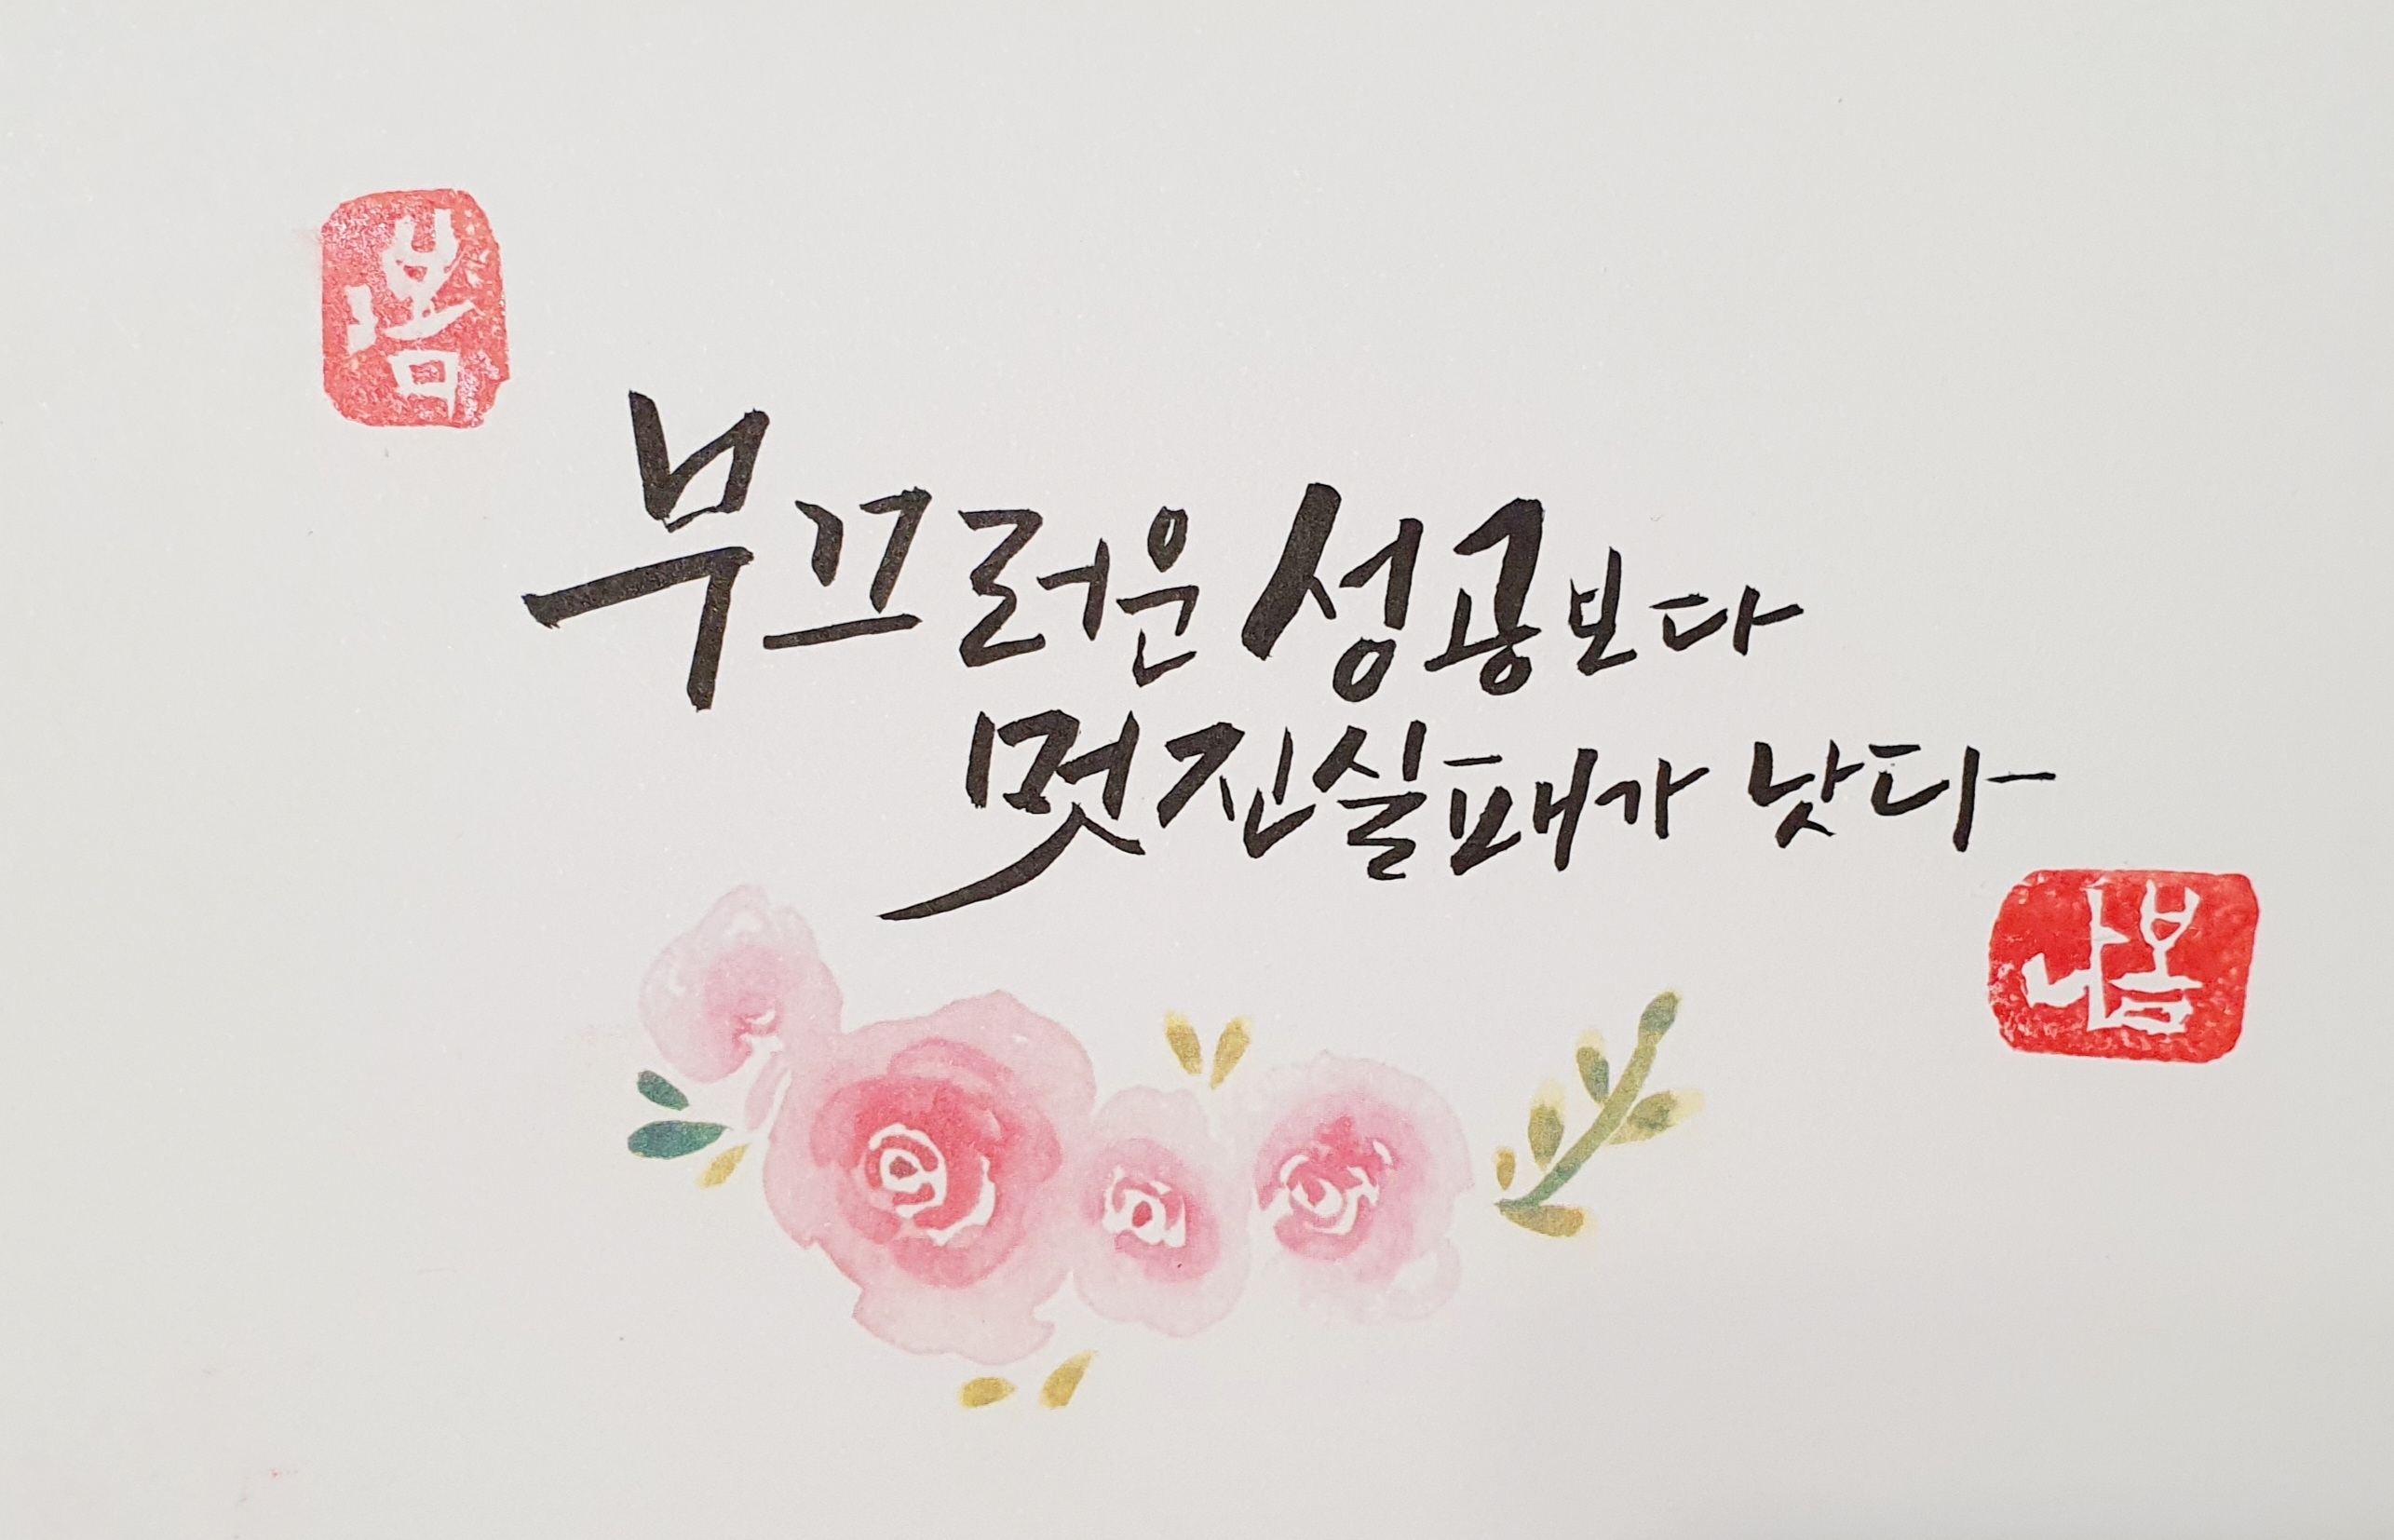 봄
부끄러운 성공보다
멋진실패가 낫다